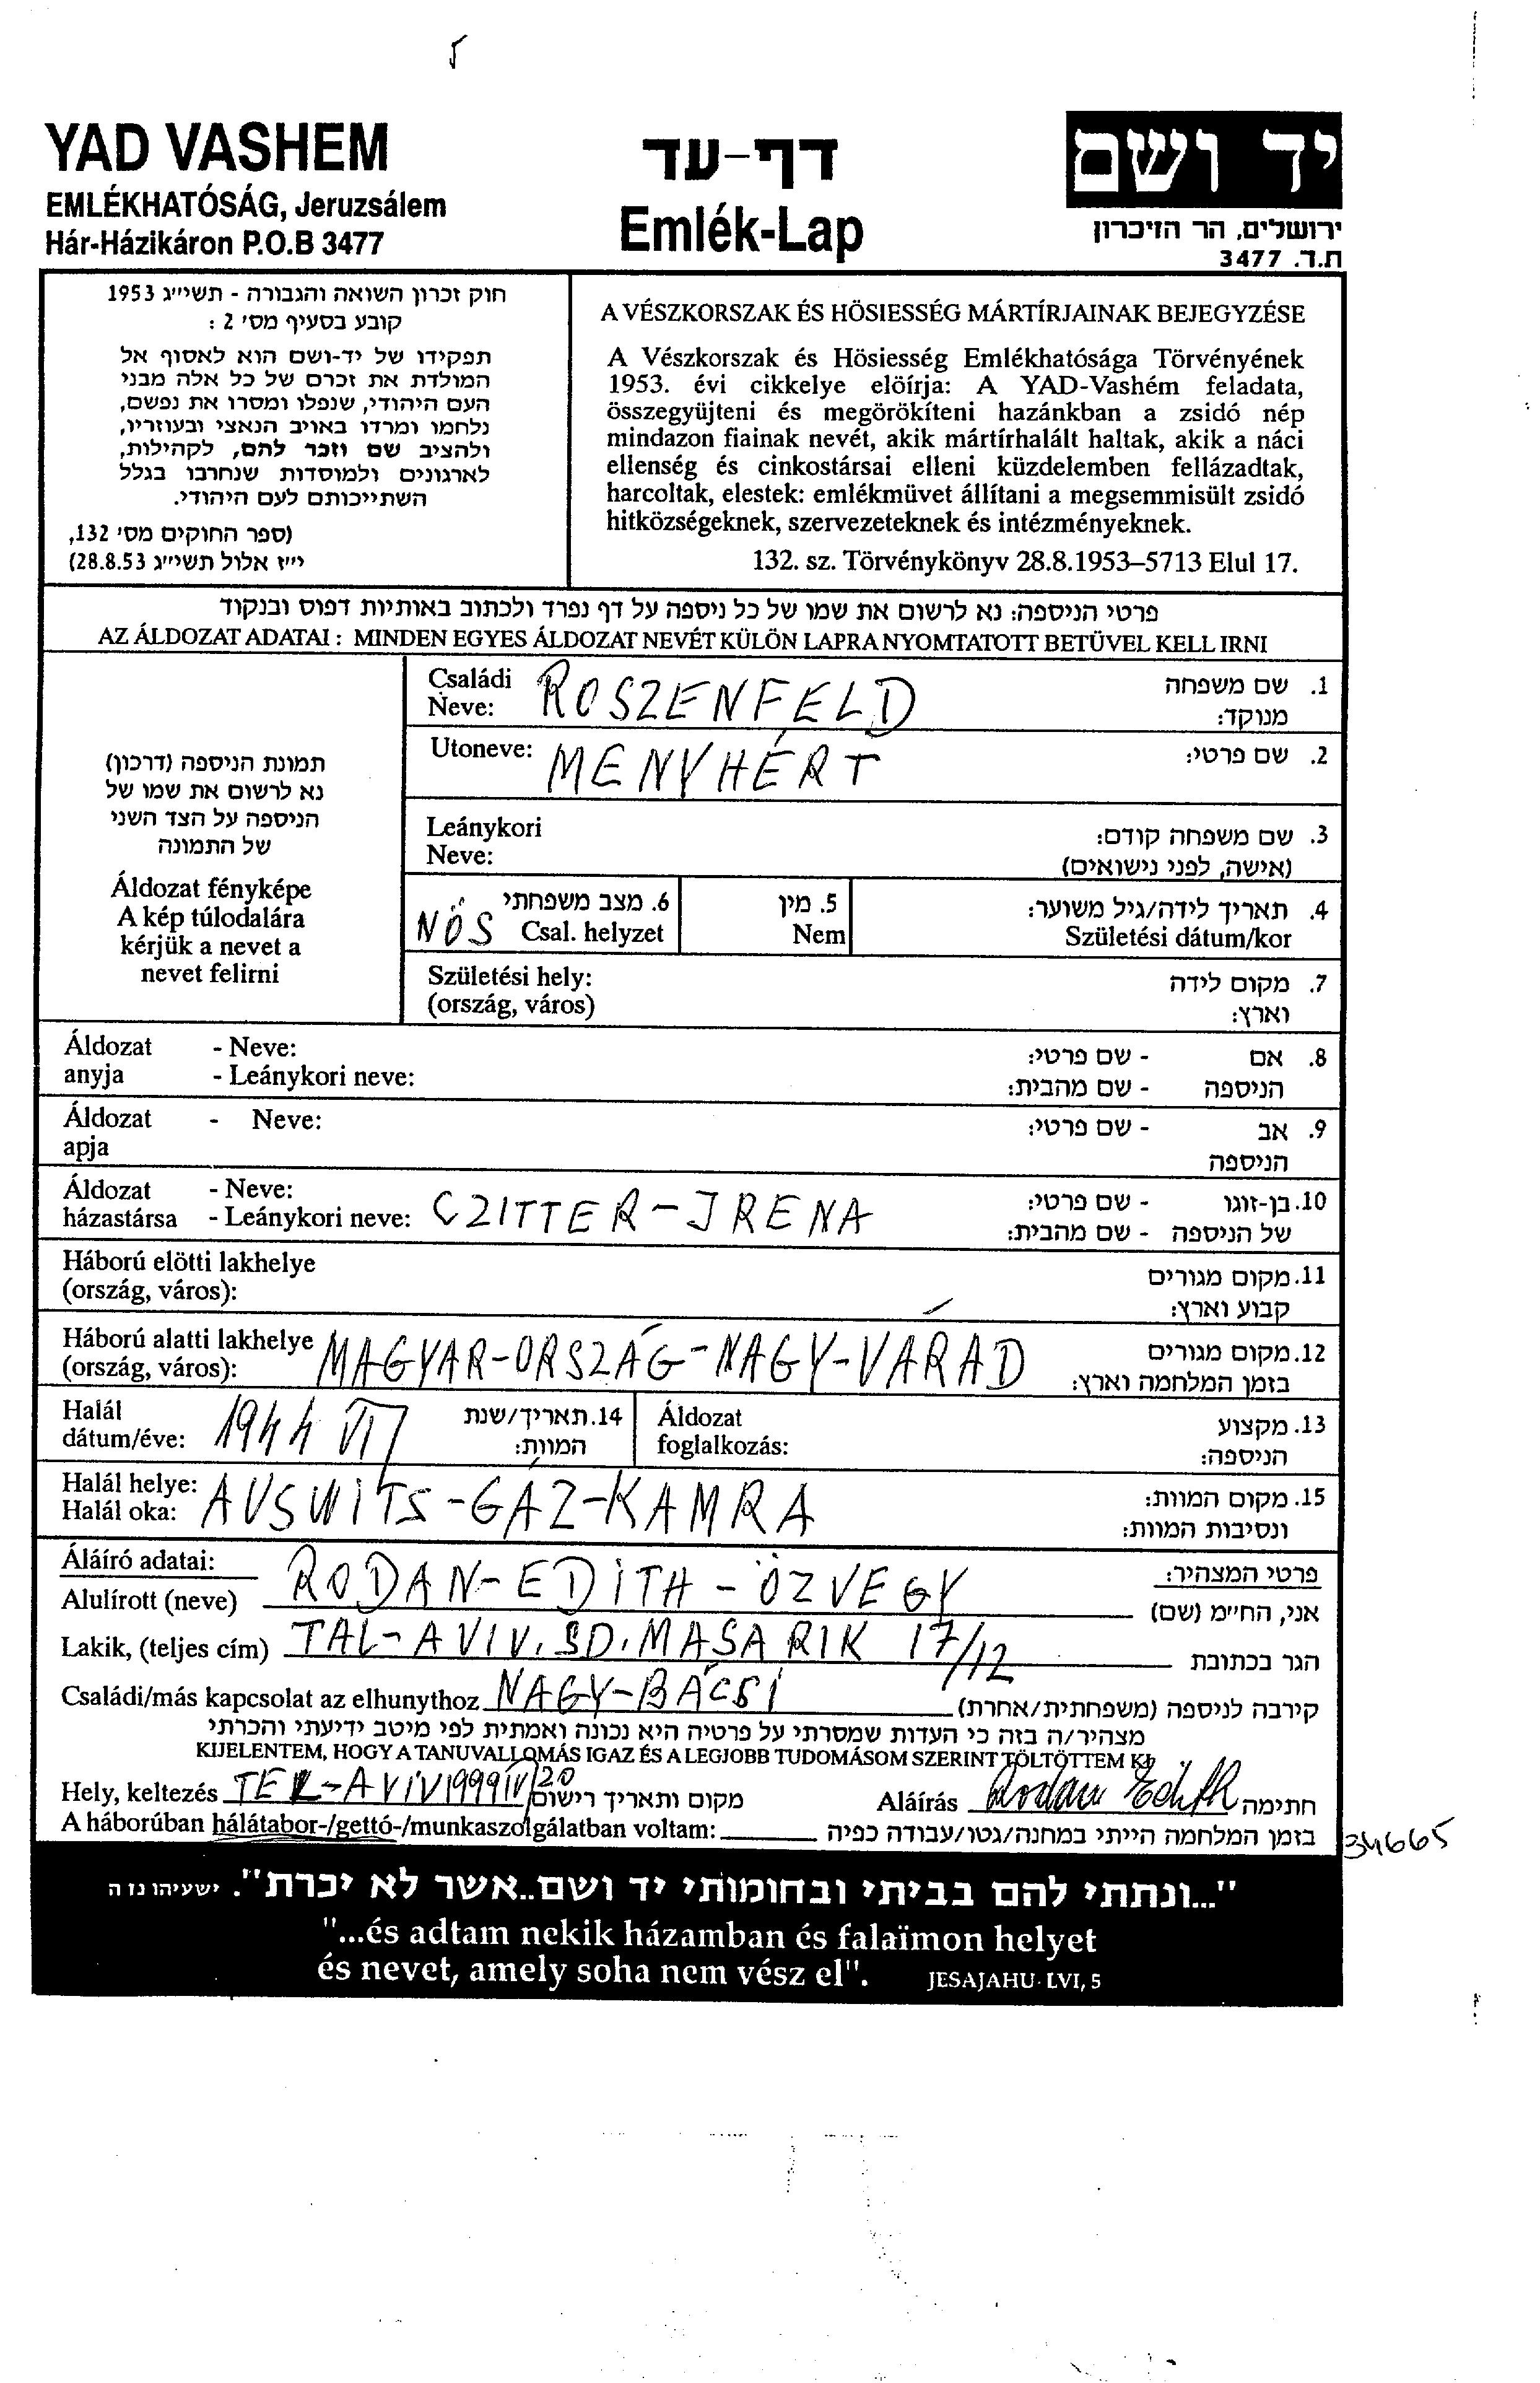 YAD VASHEM
EMLÉKHATÓSÁG, Jeruzsálem
Hár-Házikáron P.O.B 3477
דף-עד
Emlék-Lap
יד ושם
ירושלים, הר הזיכרון
ת.ד. 3477
חוק זכרון השואה והגבורה - תשי״ג 1953
קובע בסעיף מס׳ 2 :
תפקידו של יד-ושם הוא לאסוף אל
המולדת את זכרם של כל אלה מבני
העם היהודי, שנפלו ומסרו את נפשם,
נלחמו ומרדו באויב הנאצי ובעוזריו,
ולהציב שם וזכר להם, לקהילות,
לארגונים ולמוסדות שנחרבו בגלל
השתייכותם לעם היהודי.
(ספר החוקים מס׳ 132,
י״ז אלול תשי״ג 28.8.53)
A VÉSZKORSZAK ÉS HÖSIESSÉG MÁRTÍRJAINAK BEJEGYZÉSE
A Vészkorszak és Hösiesség Emlékhatósága Törvényének
1953. évi cikkelye elöírja: A YAD-Vashém feladata,
összegyüjteni és megörökíteni hazánkban a zsidó nép
mindazon fiainak nevét, akik mártírhalált haltak, akik a náci
ellenség és cinkostársai elleni küzdelemben fellázadtak,
harcoltak, elestek: emlékmüvet állítani a megsemmisült zsidó
hitközségeknek, szervezeteknek és intézményeknek.
132. sz. Törvénykönyv 28.8.1953–5713 Elul 17.
פרטי הניספה: נא לרשום את שמו של כל ניספה על דף נפרד ולכתוב באותיות דפוס ובנקוד
AZ ÁLDOZAT ADATAI : MINDEN EGYES ÁLDOZAT NEVÉT KÜLÖN LAPRA NYOMTATOTT BETÜVEL KELL IRNI
תמונת הניספה (דרכון)
נא לרשום את שמו של
הניספה על הצד השני
של התמונה
Áldozat fényképe
A kép túlodalára
kérjük a nevet a
nevet felirni
Családi
Neve: ROSZENFELD
1. שם משפחה
מנוקד:
Utoneve: MENYHÉRT
2. שם פרטי:
Leánykori
Neve:
3. שם משפחה קודם:
(אישה, לפני נישואים)
NÖS
6. מצב משפחתי
Csal. helyzet
5. מין
Nem
4. תאריך לידה/גיל משוער:
Születési dátum/kor
Születési hely:
(ország, város)
7. מקום לידה
וארץ:
Áldozat - Neve:
anyja - Leánykori neve:
8. אם - שם פרטי:
הניספה - שם מהבית:
Áldozat - Neve:
apja
9. אב - שם פרטי:
הניספה
Áldozat - Neve:
házastársa - Leánykori neve: CZITTER-IRENA
10. בן-זוגו - שם פרטי:
של הניספה - שם מהבית:
Háború elötti lakhelye
(ország, város):
11. מקום מגורים
קבוע וארץ:
Háború alatti lakhelye
(ország, város): MAGYAR-ORSZÁG-NAGY-VÁRAD
12. מקום מגורים
בזמן המלחמה וארץ:
Halál
dátum/éve: 1944 VI
14. תאריך/שנת
המוות:
Áldozat
foglalkozás:
13. מקצוע
הניספה:
Halál helye:
Halál oka: AUSWITS-GÁZ-KAMRA
15. מקום המוות:
ונסיבות המוות:
Áláíró adatai:
פרטי המצהיר:
Alulírott (neve) RODAN-EDITH-ÖZVEGY אני, החי״מ (שם)
Lakik, (teljes cím) TAL-AVIV. SD. MASARIK 17/12 הגר בכתובת
Családi/más kapcsolat az elhunythoz NAGY-BÁCSI קירבה לניספה (משפחתית/אחרת)
מצהיר/ה בזה כי העדות שמסרתי על פרטיה היא נכונה ואמתית לפי מיטב ידיעתי והכרתי
KIJELENTEM, HOGY A TANUVALLOMÁS IGAZ ÉS A LEGJOBB TUDOMÁSOM SZERINT TÖLTÖTTEM KI
Hely, keltezés TEL-AVIV 1999 IV/20 מקום ותאריך רישום Aláírás Rodan Edith חתימה
A háborúban hálátabor-/gettó-/munkaszolgálatban voltam: בזמן המלחמה הייתי במחנה/גטו/עבודה כפיה
34665
"...ונתתי להם בביתי ובחומותי יד ושם..אשר לא יכרת". ישעיהו נז ה
"...és adtam nekik házamban és falaïmon helyet
és nevet, amely soha nem vész el". JESAJAHU- LVI, 5